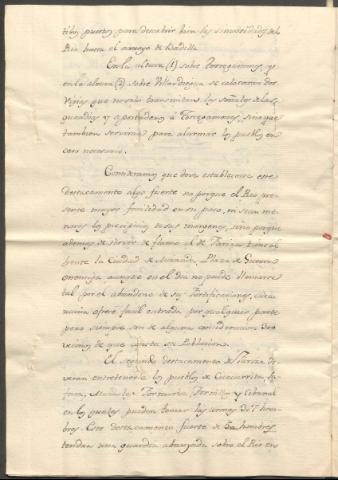 puestos para descubrir bien las sinuosidades del
Rio hasta el arroyo de Badilla
En la altura (1) sobre y
en la altura (2) sobre Villardiegua se colocaran dos
Vigias que no solo transmitan las señales a las
guardias y apostaderos a Torregamones, sino que
tambien serviran para alarmar los pueblos en
caso necesario.
Consideramos que deve establecerse este
destacamento algo fuerte no porque el Rio pre
sente mayor facilidad en su paso, ni sean me
nores los precipicios de sus margenes, sino porque
ademas de servir de flanco al de Fariza tiene al
frente la Ciudad de Miranda, Plaza de Guerra
enemiga, aunque en el dia no puede llamarse
tal por el abandono de sus fortificaciones, cuia
ofrece facil entrada por qualquier parte
pero siempre son de alguna consideracion los
vecinos de que consta su Poblacion.
El segundo destacamento de Fariza de
veran entretenerlo los pueblos de Cozcurrita, Fa
riza, Mamoles, Tornuvia, Formillos y Cibanal
en los quales pueden tomar las armas 67 hom
bres. Este destacamento fuerte de hombres
tendra una guardia abanzada sobre el Rio en